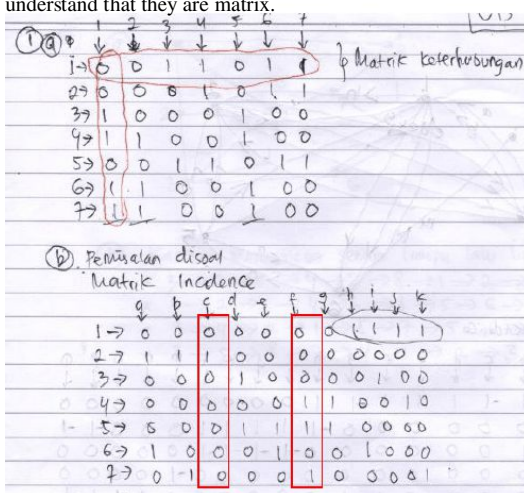 understand that they are matrix.
1 a 1 2 3 4 5 6 7
1→ 0 0 1 1 0 1 1 Matrik keterhubungan
2→ 0 0 0 1 0 1 1
3→ 1 0 0 0 1 0 0
4→ 1 1 0 0 1 0 0
5→ 0 0 1 1 0 1 1
6→ 1 1 0 0 1 0 0
7→ 1 1 0 0 1 0 0
b Pemisalan disoal
Matrik Incidence
a b c d e f g h i j k
1→ 0 0 0 0 0 0 0 1 1 1 1
2→ 1 1 1 0 0 0 0 0 0 0 0
3→ 0 0 0 1 0 0 0 0 1 0 0
4→ 0 0 0 0 0 1 1 0 0 1 0
5→ 0 0 0 1 1 1 1 0 0 0 0
6→ 1 0 0 0 -1 0 0 1 0 0 0
7→ 0 -1 0 0 0 1 0 0 0 0 1